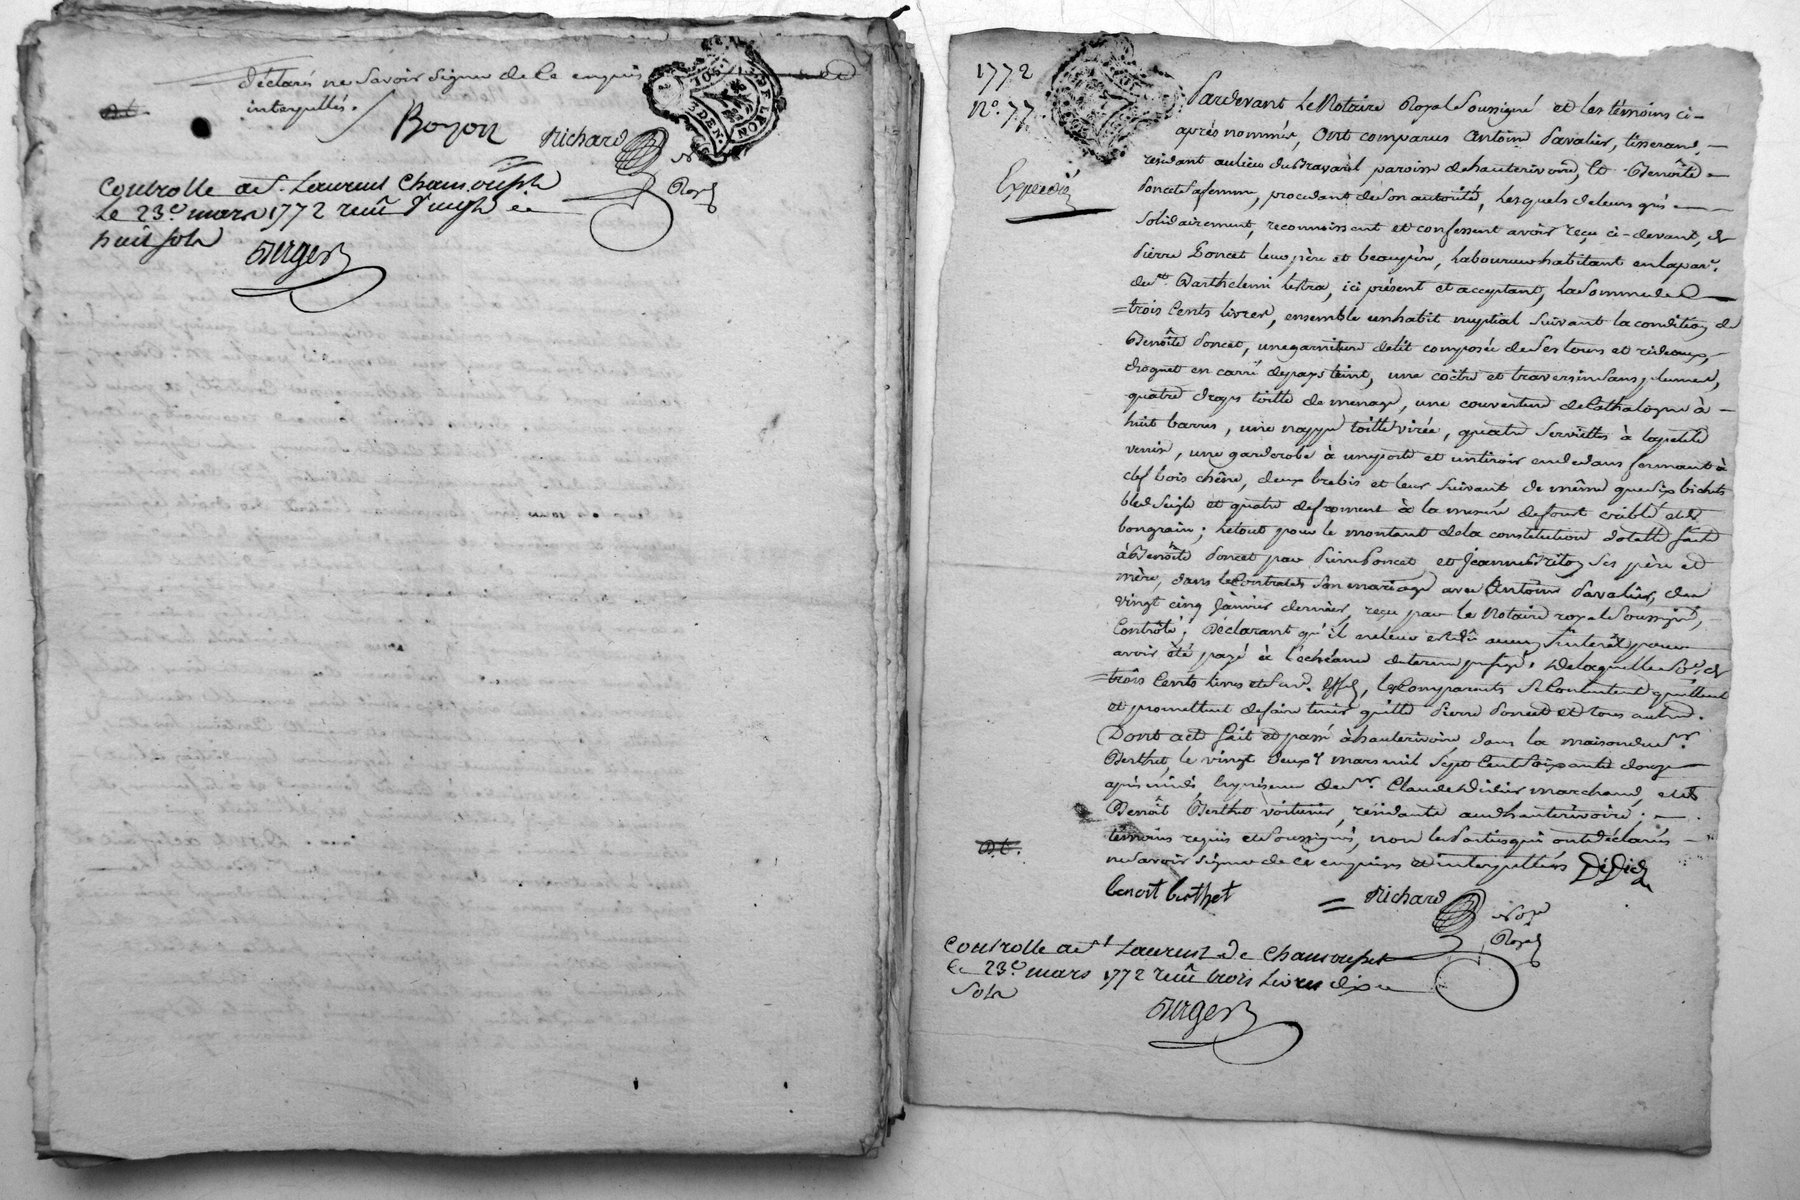 déclarés ne Savoir signer de ce enquis
interpellés.
Boyon Richard
Royal
Controllé a St. Laurent Chamousset
Le 23e mars 1772 reçu
huit sols
Berger
1772
No. 77
Expédié
Pardevant Le Notaire Royal Soussigné et les témoins ci-
après nommés, Ont comparus Antoine Pavalier, tisserand,
résidant au lieu du paroisse de hauterivoire, Et Benoîte
Poncet sa femme, procedant de son autorité, Lesquels de leurs grés
Solidairement, reconnoissent et confessent avoir reçu ci-devant, de
Pierre Poncet leur père et beaupère, Laboureur habitant en la parse.
de St. Barthelemi lestra, ici présent et acceptant, la Somme de
trois Cents livres, ensemble un habit nuptial suivant la condition de
Benoîte Poncet, une garniture de lit composée de Ses tours et rideaux,
droguet en carré de pays teint, une coître et traversin sans plumes,
quatre draps toille de menage, une couverture de Cathalogne à
huit barres, une nappe toille virée, quatre Serviettes à la petite
venise, une garderobe à une porte et un tiroir en dedans fermant à
clef bois chêne, deux brebis et leur Suivant de même que Six bichets
bled Seigle et quatre de froment à la mesure de criblé et de
bon grain; Le tout pour le montant de la constitution dotalle faite
à Benoîte Poncet par Pierre Poncet et Jeanne Ses père et
mère, dans le Contrat de Son mariage avec Antoine Pavalier, du
vingt cinq Janvier dernier, reçu par le Notaire royal Soussigné,
Contrôlé; Déclarant qu'il ne leur est dû aucun interêt pour
avoir été payé à l'échéance du terme De laquelle Se. de
trois Cents livres et Sus. Effets, les Comparants Se Contentent quittent
et promettent de faire tenir quitte Pierre Poncet et tous autres.
Dont acte fait et passé à hauterivoire dans la maison du Sr.
Berthet, le vingt deux mars mil Sept Cent Soixante douze
après midi En présence de Sr. Claude Didier marchand, et de
Benoît Berthet voiturier, résidants aud. hauterivoire;
témoins requis et Soussignés, non les Parties qui ont déclarés
ne Savoir signer de ce enquises et interpellées Didier
benoit berthet Richard Nore
Royal
Controllé a St Laurent de Chamousset
Le 23e mars 1772 reçu trois Livres dix
Sols
Berger